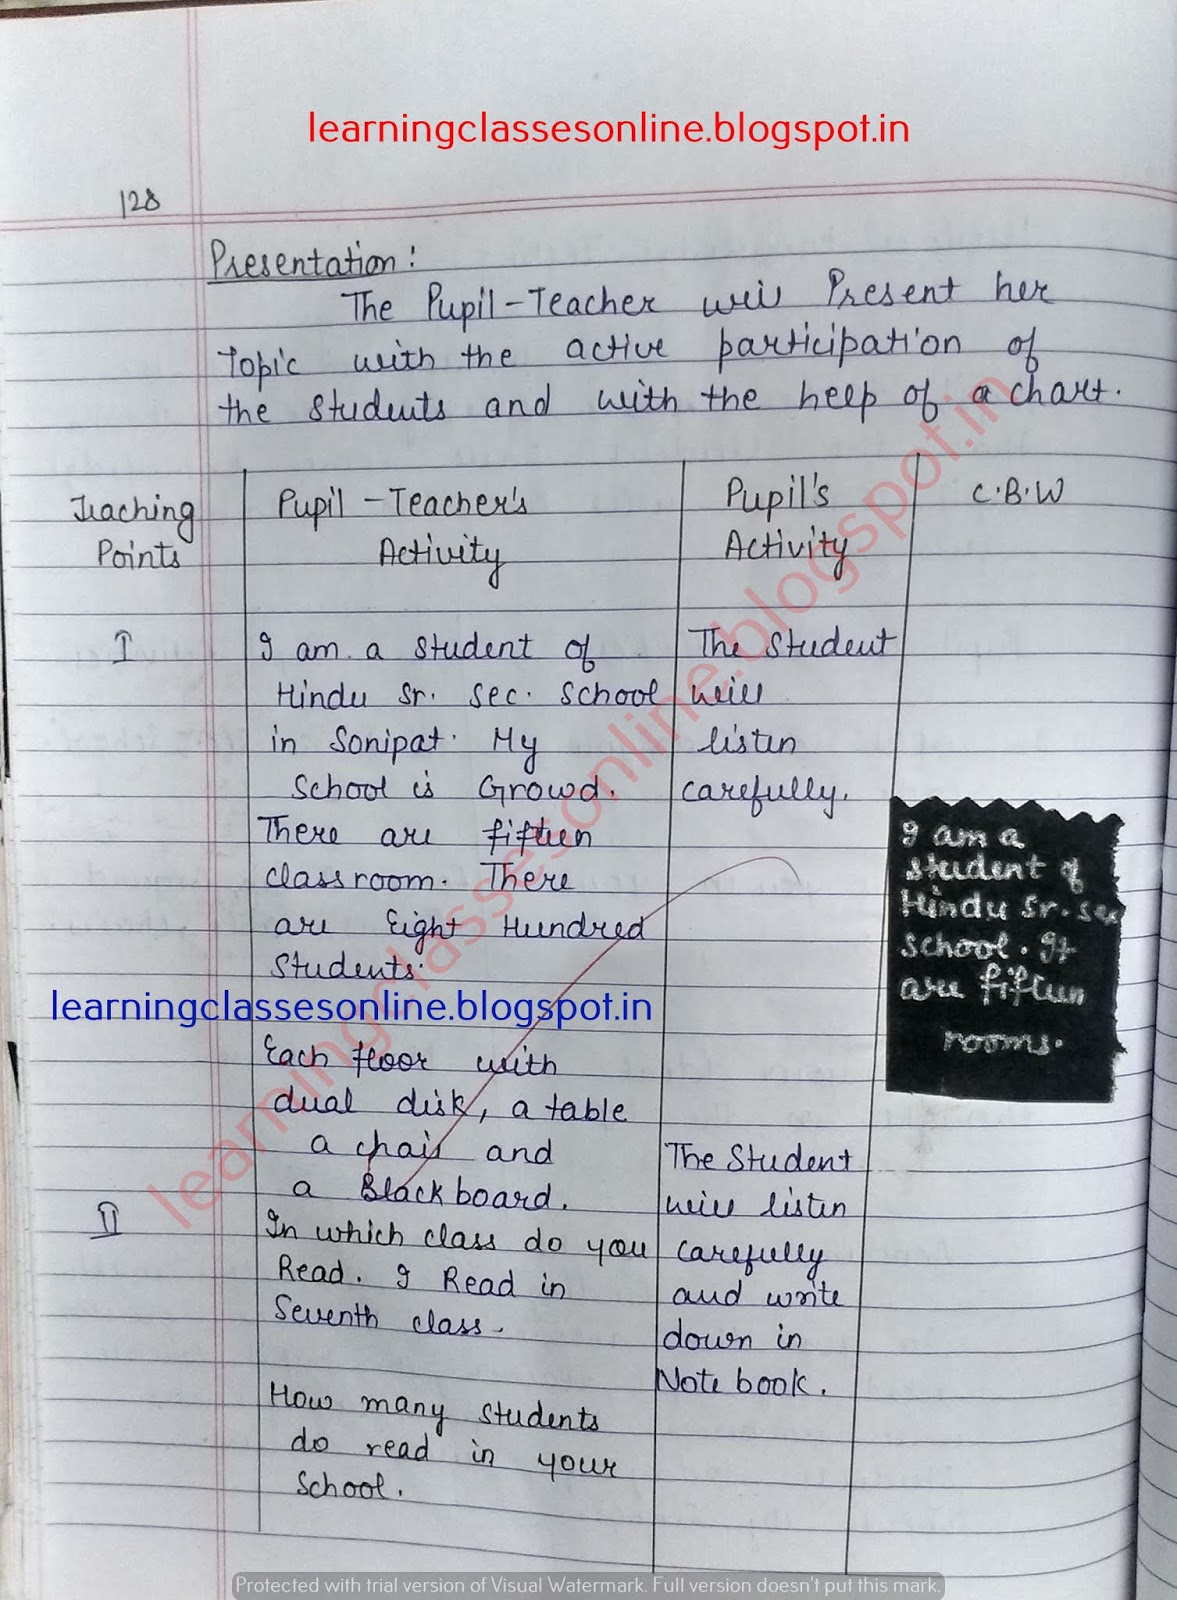 learningclassesonline.blogspot.in
128
Presentation:
The Pupil-Teacher will Present her
Topic with the active participation of
the students and with the help of a chart.
Teaching
Points
Pupil-Teacher's
Activity
Pupil's
Activity
C.B.W
I
I am a student of
Hindu Sr. Sec. School
in Sonipat. My
School is Growd.
There are fifteen
classroom. There
are Eight Hundred
Students.
learningclassesonline.blogspot.in
Each floor with
dual disk, a table
a chair and
a Blackboard.
The Student
will
listen
carefully.
I am a
student of
Hindu Sr. sec
school. It
are fifteen
rooms.
II
In which class do you
Read. I Read in
Seventh class.
How many students
do read in your
School.
The Student
will listen
carefully
and write
down in
Note book.
learningclassesonline.blogspot.in
Protected with trial version of Visual Watermark. Full version doesn't put this mark.